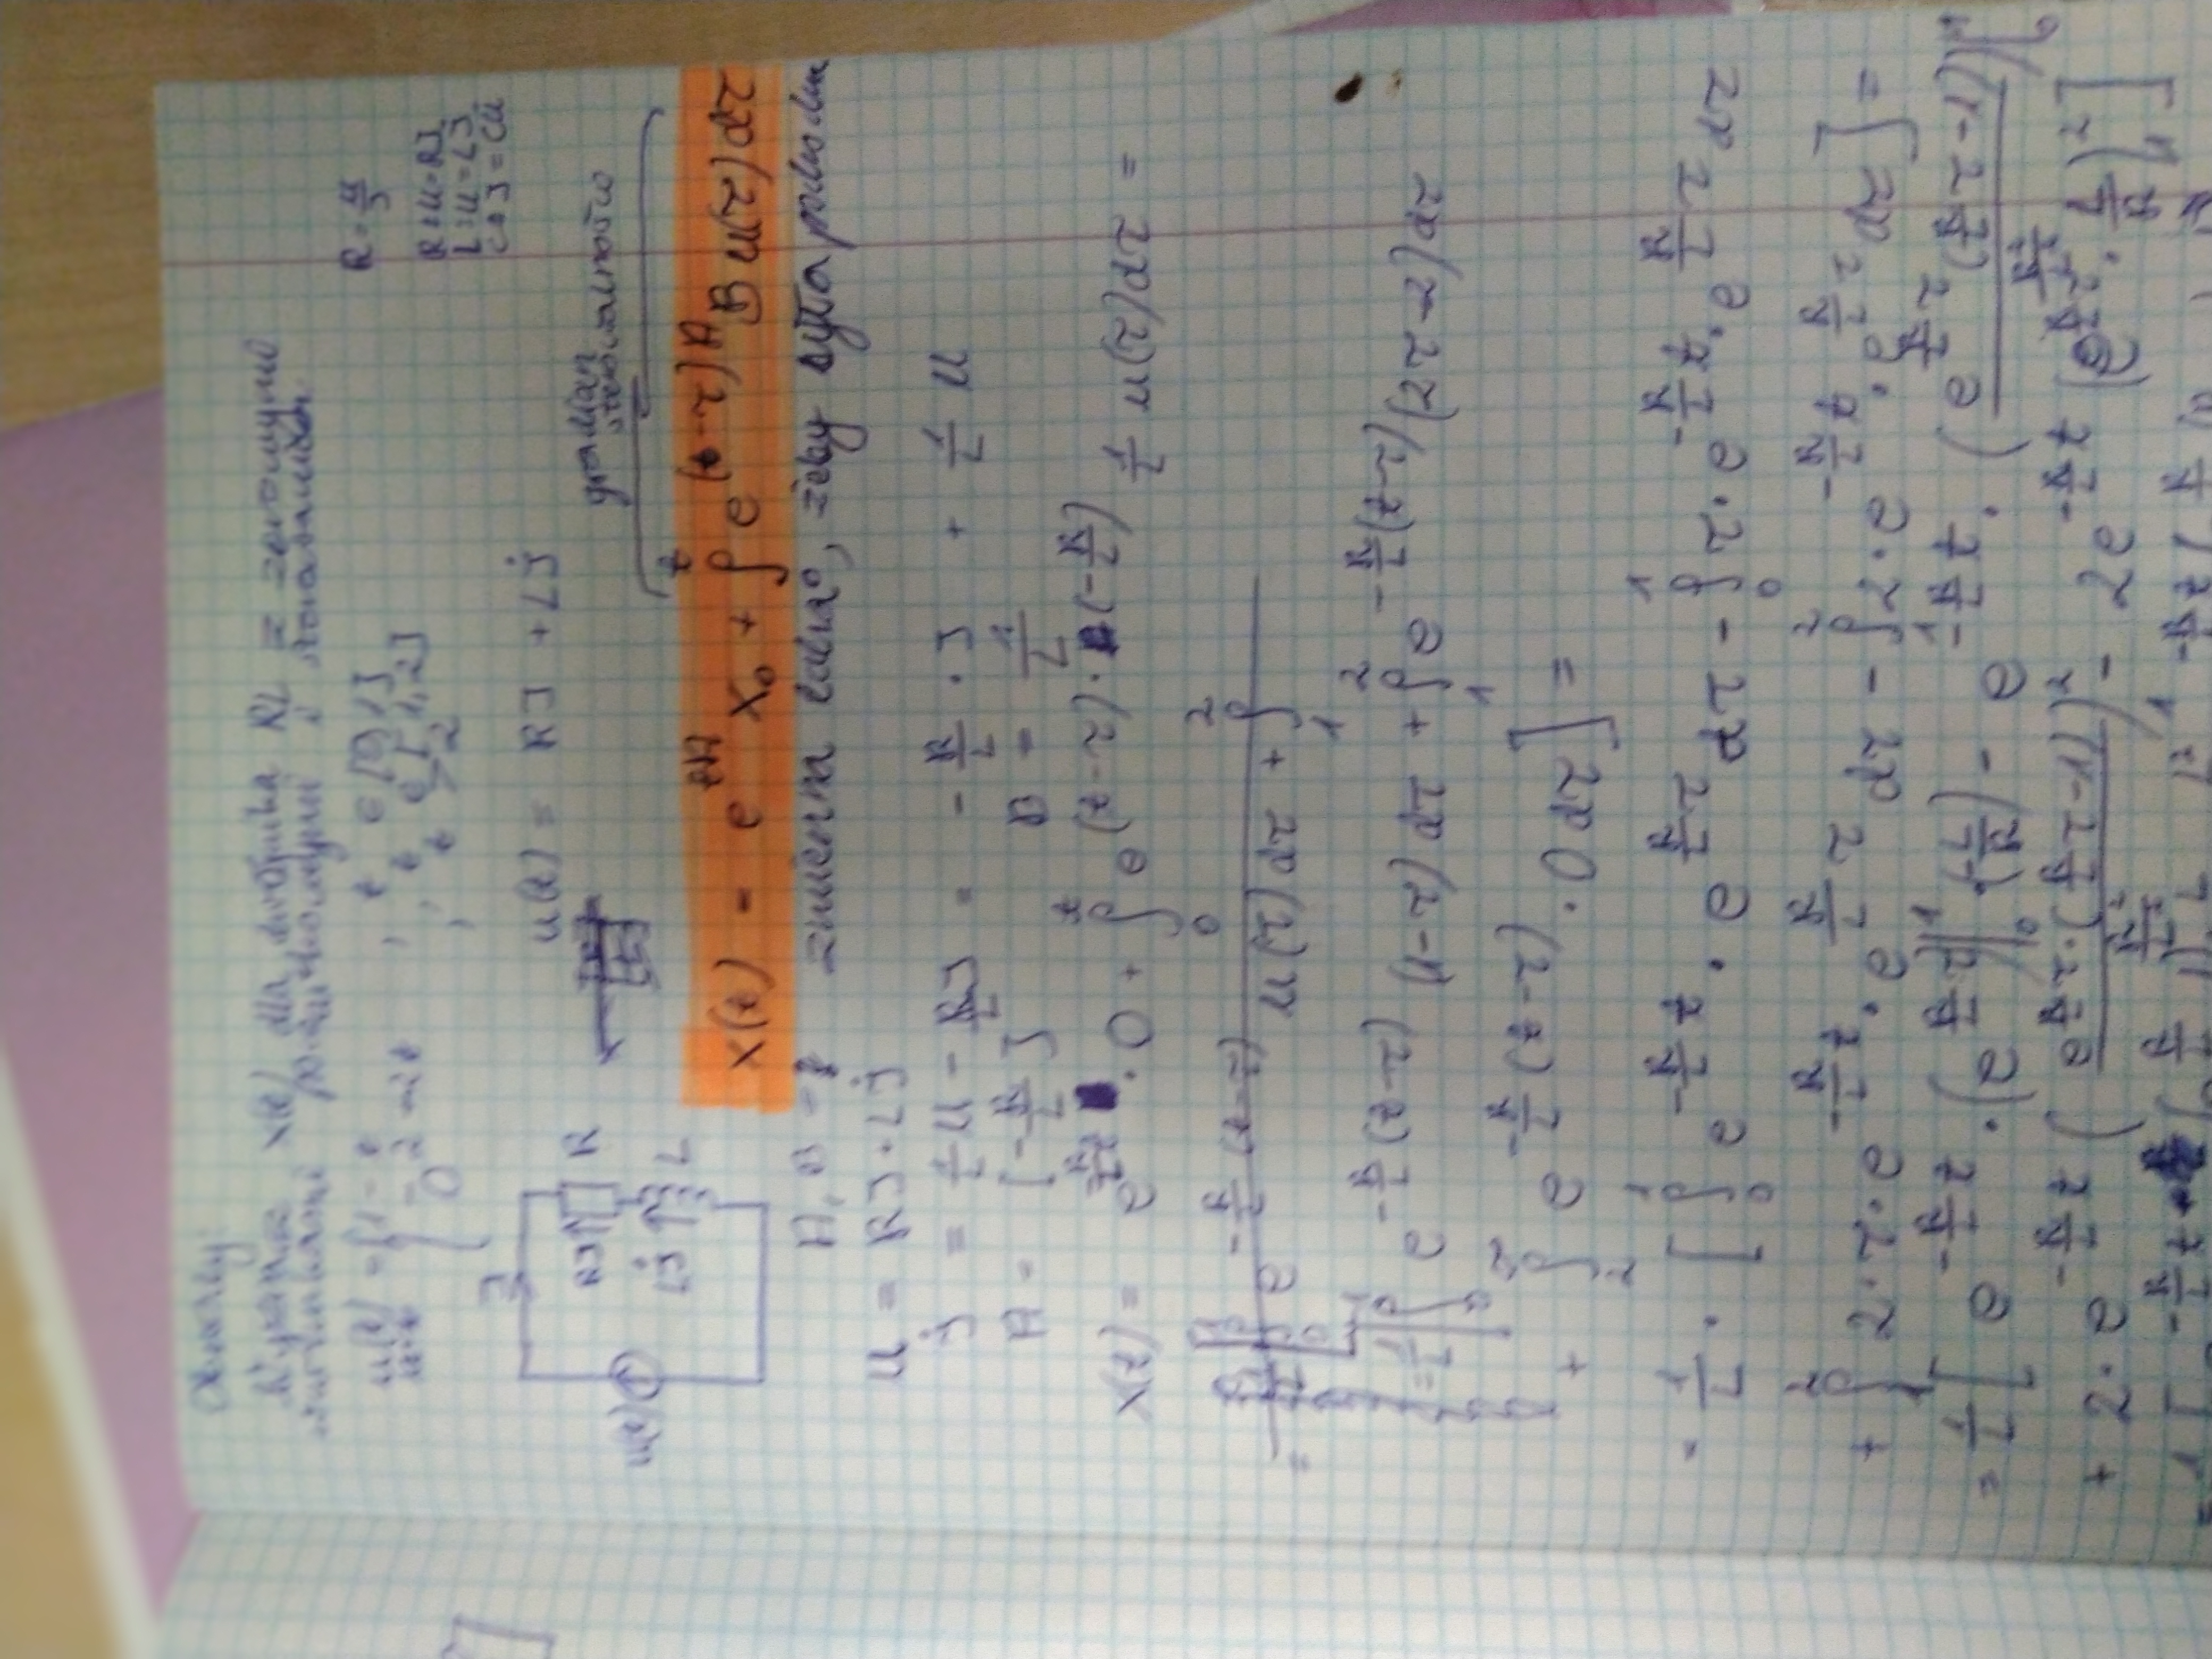 x(t) dla dwójnika RL z zerowymi
początkowymi i sterowaniem
u(t) = { 1 - t , t ∈ [0, 1]
- 2 - 2t , t ∈ [1, 2]
0 , t > 2
R = u/J
R: u = RJ
L: u = LJ̇
J = Cu̇
J
u(t) = RJ + LJ̇
RJ R
u(t)
LJ̇ L
gramian
sterowalności
x(t) = e^{tA} x₀ + ∫₀^t e^{(t-τ)A} B u(τ) dτ
A, B → zmienna taka, żeby była pochodna
U = RJ + LJ̇
J̇ = 1/L U - R/L J = - R/L · J + 1/L U
A = [-R/L] B = 1/L
x(t) = e^{-R/L t} · 0 + ∫₀^t e^{(t-τ)·(-R/L)} 1/L u(τ) dτ =
= e^{-R/L (t-τ)} u(τ) dτ + ∫₁²
= 1/L ∫₀¹ e^{-R/L (t-τ)} (1-τ) dτ + ∫₁² e^{-R/L (t-τ)} (2τ-2) dτ
+ ∫₂ e^{-R/L (t-τ)} · 0 dτ ] =
= 1/L · [ ∫₀¹ e^{-R/L t} · e^{R/L τ} dτ - ∫₀¹ τ · e^{-R/L t} · e^{R/L τ} dτ
+ ∫₁² 2 · τ · e^{-R/L t} · e^{R/L τ} dτ - ∫₁² 2 · e^{-R/L t} · e^{R/L τ} dτ ] =
= 1/L [ e^{-R/L t} · (e^{R/L τ})|₀¹ · (L/R) - e^{-R/L t} · ( e^{R/L τ} (R/L τ - 1) / R²/L² )|₀¹
+ 2 · e^{-R/L t} ( e^{R/L τ} · (R/L τ - 1) / R²/L² )₁² - 2e^{-R/L t} (e^{R/L τ} · L/R)₁² ]